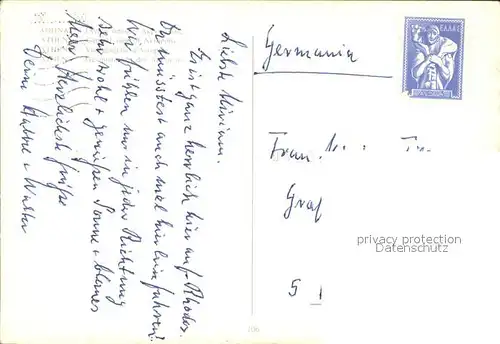 Liebste Miriam.
Es ist ganz herrlich hier auf Rhodos.
Du müsstest auch mal hierhin fahren!
Wir fühlen uns in jeder Richtung
sehr wohl + genießen Sonne + blaues
Meer. Herzlichste Grüße
Deine + Walter
Germania
ΕΛΛΑΣ
Frau
Graf
5
privacy protection
Datenschutz